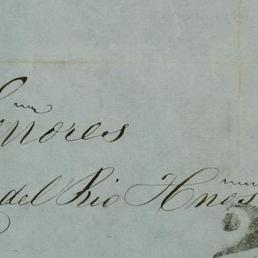 Señores
del Rio Hnos